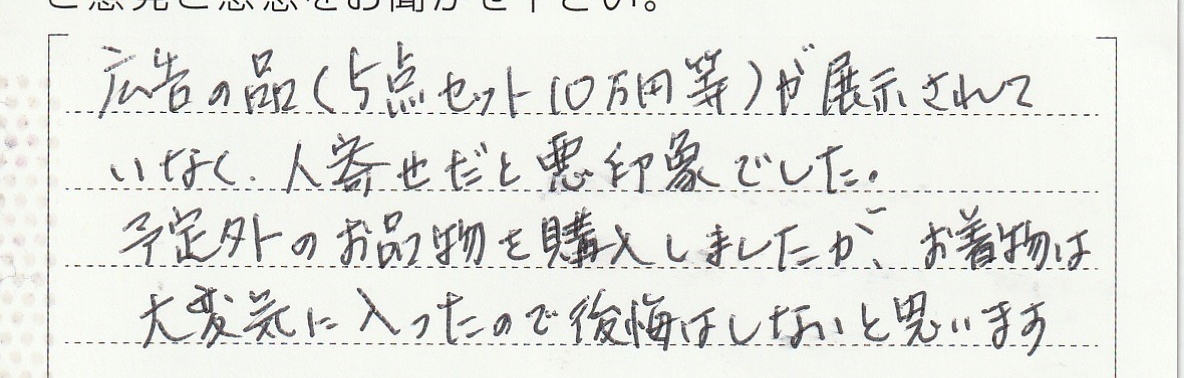 ご意見ご感想をお聞かせ下さい。
広告の品(5点セット10万円等)が展示されて
いなく、人寄せだと悪印象でした。
予定外のお品物を購入しましたが、お着物は
大変気に入ったので後悔はしないと思います